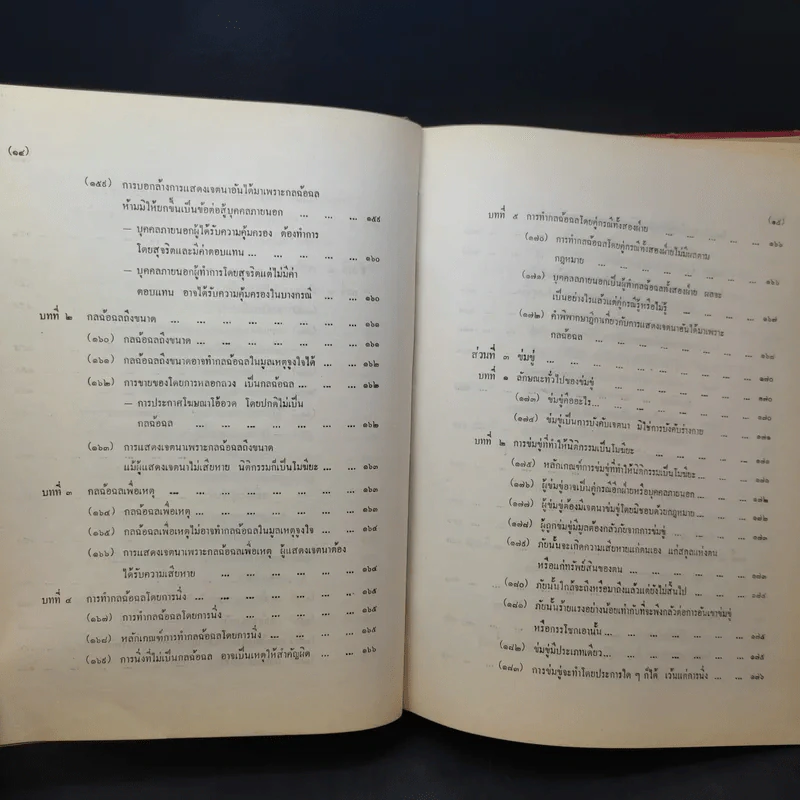 (๑๔)
(๑๕๙) การบอกล้างการแสดงเจตนาอันได้มาเพราะกลฉ้อฉล
ห้ามมิให้ยกขึ้นเป็นข้อต่อสู้บุคคลภายนอก ... ... ... ๑๕๙
— บุคคลภายนอกผู้ได้รับความคุ้มครอง ต้องทำการ
โดยสุจริตและมีค่าตอบแทน ... ... ... ๑๖๐
— บุคคลภายนอกผู้ทำการโดยสุจริตแต่ไม่มีค่า
ตอบแทน อาจได้รับความคุ้มครองในบางกรณี ... ... ๑๖๐
บทที่ ๒ กลฉ้อฉลถึงขนาด ... ... ... ... ... ... ... ๑๖๑
(๑๖๐) กลฉ้อฉลถึงขนาด ... ... ... ... ... ... ๑๖๑
(๑๖๑) กลฉ้อฉลถึงขนาดอาจทำกลฉ้อฉลในมูลเหตุจูงใจได้ ... ๑๖๒
(๑๖๒) การขายของโดยการหลอกลวง เป็นกลฉ้อฉล ... ... ๑๖๒
— การประกาศโฆษณาโอ้อวด โดยปกติไม่เป็น
กลฉ้อฉล ... ... ... ... ... ... ๑๖๒
(๑๖๓) การแสดงเจตนาเพราะกลฉ้อฉลถึงขนาด
แม้ผู้แสดงเจตนาไม่เสียหาย นิติกรรมก็เป็นโมฆียะ ... ... ๑๖๓
บทที่ ๓ กลฉ้อฉลเพื่อเหตุ ... ... ... ... ... ... ... ๑๖๓
(๑๖๔) กลฉ้อฉลเพื่อเหตุ ... ... ... ... ... ... ๑๖๓
(๑๖๕) กลฉ้อฉลเพื่อเหตุไม่อาจทำกลฉ้อฉลในมูลเหตุจูงใจ ... ... ๑๖๔
(๑๖๖) การแสดงเจตนาเพราะกลฉ้อฉลเพื่อเหตุ ผู้แสดงเจตนาต้อง
ได้รับความเสียหาย ... ... ... ... ... ... ๑๖๔
บทที่ ๔ การทำกลฉ้อฉลโดยการนิ่ง ... ... ... ... ... ๑๖๕
(๑๖๗) การทำกลฉ้อฉลโดยการนิ่ง ... ... ... ... ... ๑๖๕
(๑๖๘) หลักเกณฑ์การทำกลฉ้อฉลโดยการนิ่ง ... ... ... ... ๑๖๕
(๑๖๙) การนิ่งที่ไม่เป็นกลฉ้อฉล อาจเป็นเหตุให้สำคัญผิด ... ... ๑๖๖
(๑๕)
บทที่ ๕ การทำกลฉ้อฉลโดยคู่กรณีทั้งสองฝ่าย ... ... ... ... ๑๖๖
(๑๗๐) การทำกลฉ้อฉลโดยคู่กรณีทั้งสองฝ่ายไม่มีผลตาม
กฎหมาย ... ... ... ... ... ... ๑๖๖
(๑๗๑) บุคคลภายนอกเป็นผู้ทำกลฉ้อฉลทั้งสองฝ่าย ผลจะ
เป็นอย่างไรแล้วแต่คู่กรณีรู้หรือไม่รู้ ... ... ... ๑๖๗
(๑๗๒) คำพิพากษาฎีกาเกี่ยวกับการแสดงเจตนาอันได้มาเพราะ
กลฉ้อฉล ... ... ... ... ... ... ๑๖๘
ส่วนที่ ๓ ข่มขู่ ... ... ... ... ... ... ... ๑๗๐
บทที่ ๑ ลักษณะทั่วไปของข่มขู่ ... ... ... ... ... ๑๗๐
(๑๗๓) ข่มขู่คืออะไร ... ... ... ... ... ... ๑๗๐
(๑๗๔) ข่มขู่เป็นการบังคับเจตนา มิใช่การบังคับร่างกาย ... ... ๑๗๑
บทที่ ๒ การข่มขู่ที่ทำให้นิติกรรมเป็นโมฆียะ ... ... ... ... ๑๗๑
(๑๗๕) หลักเกณฑ์การข่มขู่ที่ทำให้นิติกรรมเป็นโมฆียะ ... ... ...
(๑๗๖) ผู้ข่มขู่อาจเป็นคู่กรณีอีกฝ่ายหรือบุคคลภายนอก ... ... ๑๗๒
(๑๗๗) ผู้ข่มขู่ต้องมีเจตนาข่มขู่โดยมิชอบด้วยกฎหมาย ... ... ๑๗๒
(๑๗๘) ผู้ถูกข่มขู่มีมูลต้องกลัวภัยจากการข่มขู่ ... ... ... ๑๗๓
(๑๗๙) ภัยนั้นจะเกิดความเสียหายแก่ตนเอง แก่สกุลแห่งตน
หรือแก่ทรัพย์สินของตน ... ... ... ... ๑๗๓
(๑๘๐) ภัยนั้นใกล้จะถึงหรือมาถึงแล้วแต่ยังไม่สิ้นไป ... ... ๑๗๔
(๑๘๑) ภัยนั้นร้ายแรงอย่างน้อยเท่ากับที่จะพึงกลัวต่อการอันเขาข่มขู่
หรือกรรโชกเอานั้น ... ... ... ... ... ๑๗๕
(๑๘๒) ข่มขู่มีประเภทเดียว ... ... ... ... ... ๑๗๕
(๑๘๓) การข่มขู่จะทำโดยประการใด ๆ ก็ได้ เว้นแต่การนิ่ง ... ... ๑๗๖